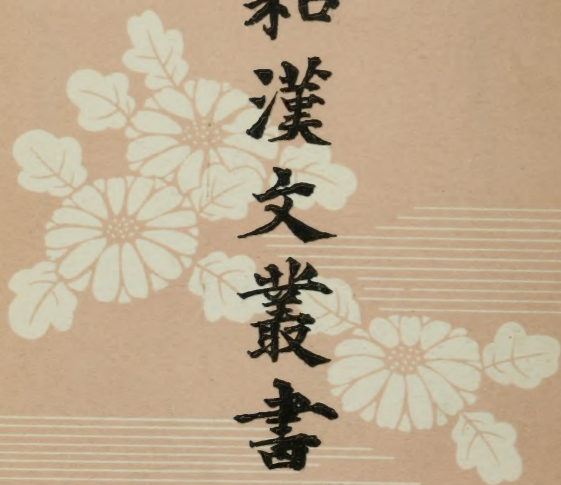 和漢文叢書